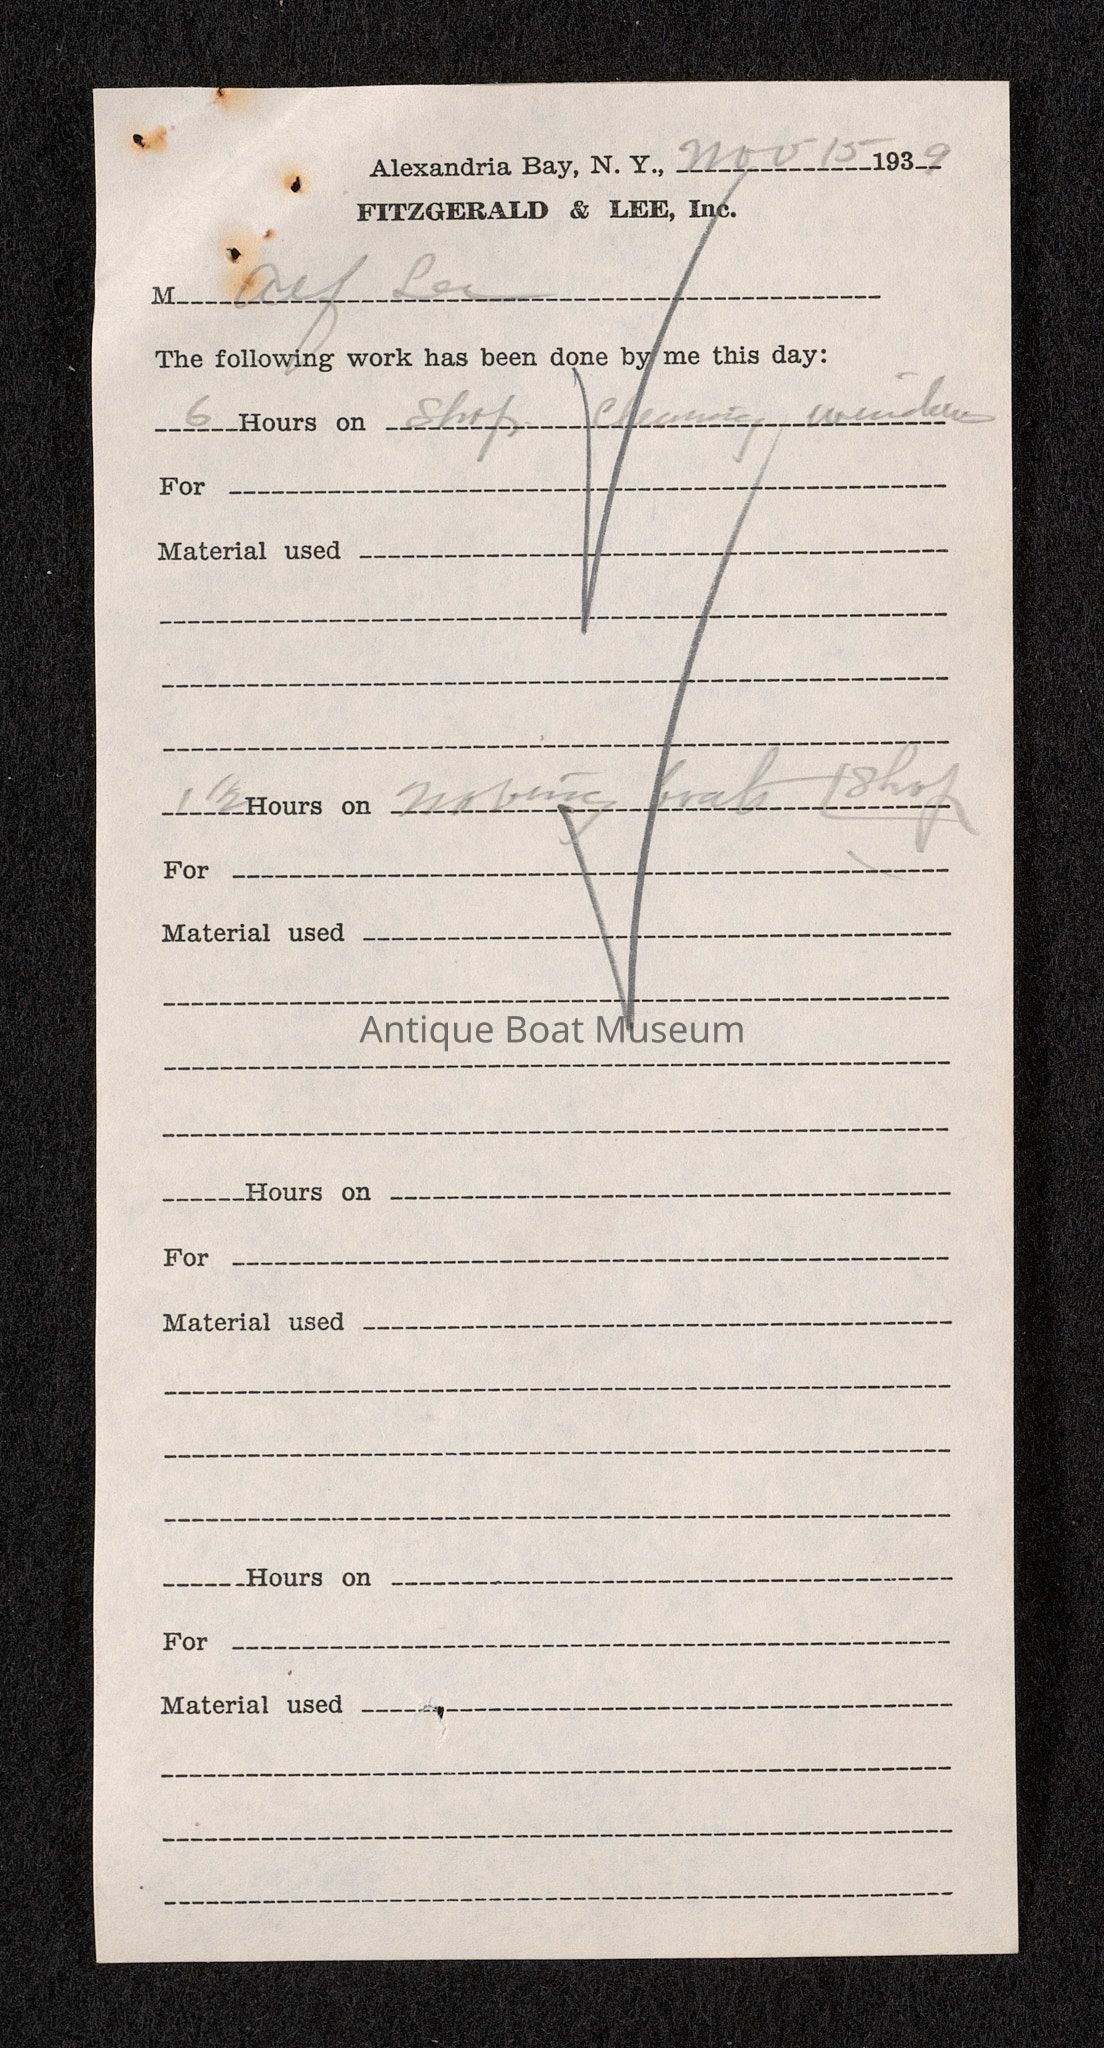 Alexandria Bay, N. Y., Nov 15 1939
FITZGERALD & LEE, Inc.
M Alf Lee
The following work has been done by me this day:
6 Hours on Shop Cleaning windows
For
Material used
1 1/2 Hours on Moving boats (Shop)
For
Material used
Antique Boat Museum
Hours on
For
Material used
Hours on
For
Material used